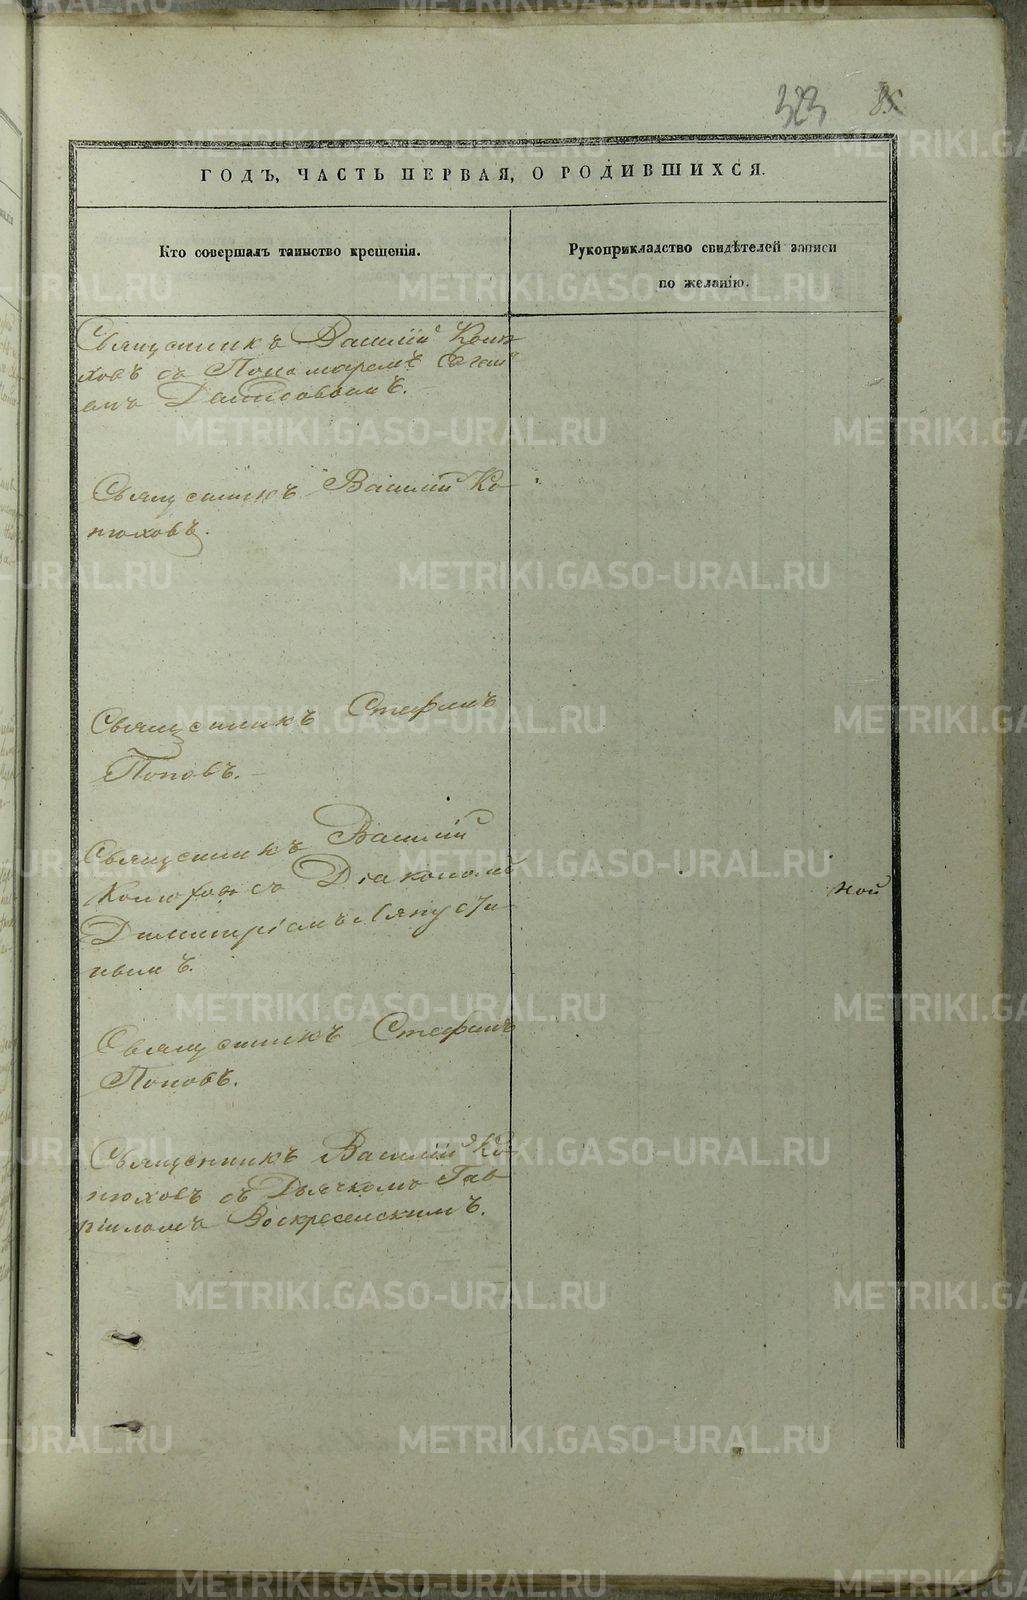 323
ГОДЪ, ЧАСТЬ ПЕРВАЯ, О РОДИВШИХСЯ.
Кто совершалъ таинство крещенія.
Рукоприкладство свидѣтелей записи
по желанію.
Священникъ Василій Коню-
ховъ съ Пономаремъ
Священникъ Василій Ко-
нюховъ.
Священникъ Стефанъ
Поповъ.
Священникъ Василій
Конюховъ съ Діакономъ
Димитріемъ Ляпусти-
нымъ.
Священникъ Стефанъ
Поповъ.
Священникъ Василій Ко-
нюховъ съ Дьячкомъ Гав-
ріиломъ Воскресенскимъ.
ной
METRIKI.GASO-URAL.RU